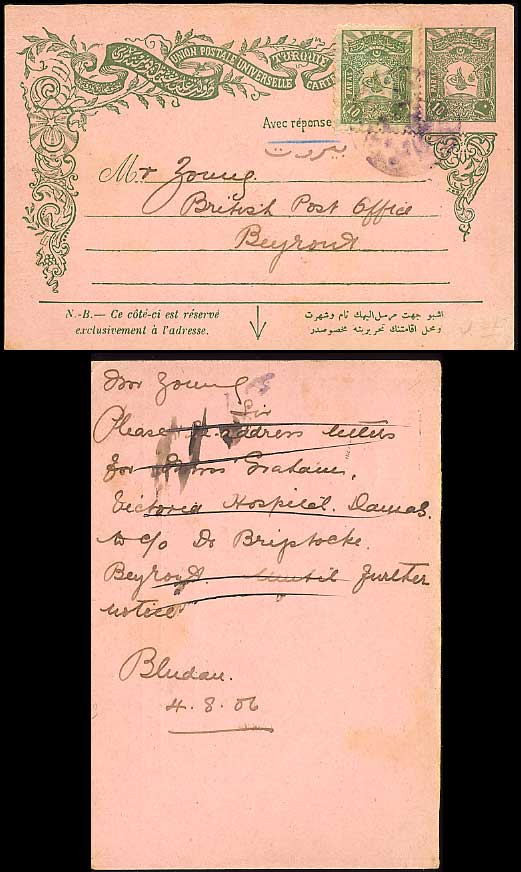 UNION POSTALE UNIVERSELLE
TURQUIE
Avec réponse
بيروت
Mr Young.
British Post Office
Beyrout
N.-B.— Ce côté-ci est réservé
exclusivement à l'adresse.
اشبو جهت مرسل اليهك نام و شهرت
و محل اقامتنك تحريرينه مخصوصدر
10 PARAS 10
10 PARAS 10
Mr Young
Sir
Please re-address letters
for Graham,
Victoria Hospital. Damas.
to c/o Dr Bripstocke.
Beyrout until further
notice
Bludan.
4. 8. 06